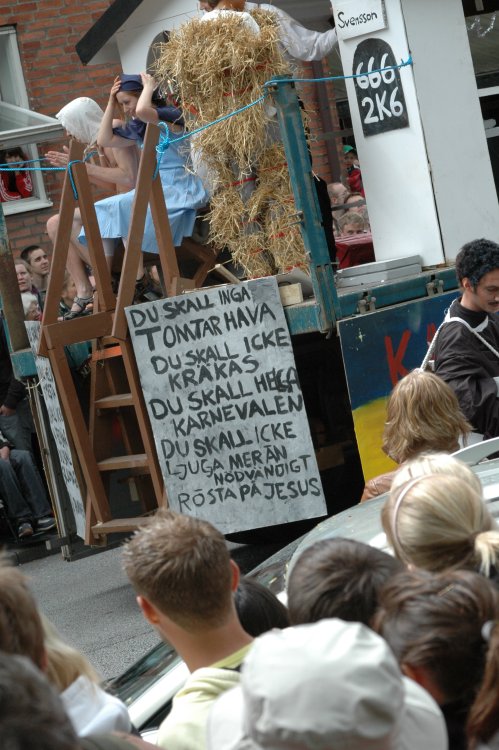 Svensson
666
2K6
DU SKALL INGA
TOMTAR HAVA
DU SKALL ICKE
KRÄKAS
DU SKALL HELGA
KARNEVALEN
DU SKALL ICKE
LJUGA MER ÄN
NÖDVÄNDIGT
RÖSTA PÅ JESUS